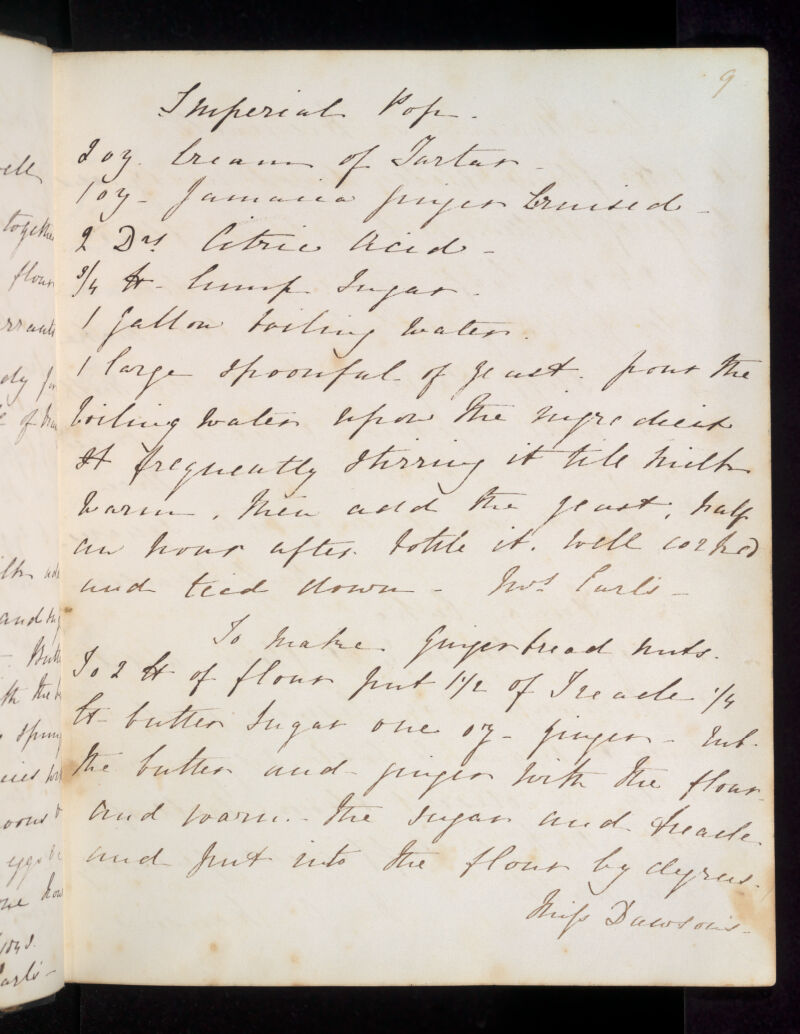 9
Imperial Pop.
2 oz. Cream of Tartar -
1 oz - Jamaica ginger bruised -
2 Drs Citric Acid -
3/4 lb - lump Sugar -
1 gallon boiling water.
1 large spoonful of yeast. pour the
boiling water upon the ingredient
frequently stirring it till milk
warm, then add the yeast, half
an hour after bottle it. Well corked
and tied down - Mrs Earl's -
To make Gingerbread nuts.
To 2 lb of flour put 1 1/2 of Treacle 1/4
lb - butter Sugar one oz - ginger - rub.
the butter and - ginger with the flour
and warm - the sugar and treacle
and put into the flour by degrees.
Miss Dawson's -
ell
together
flour
of
and
- Butt
eggs
Earl's -